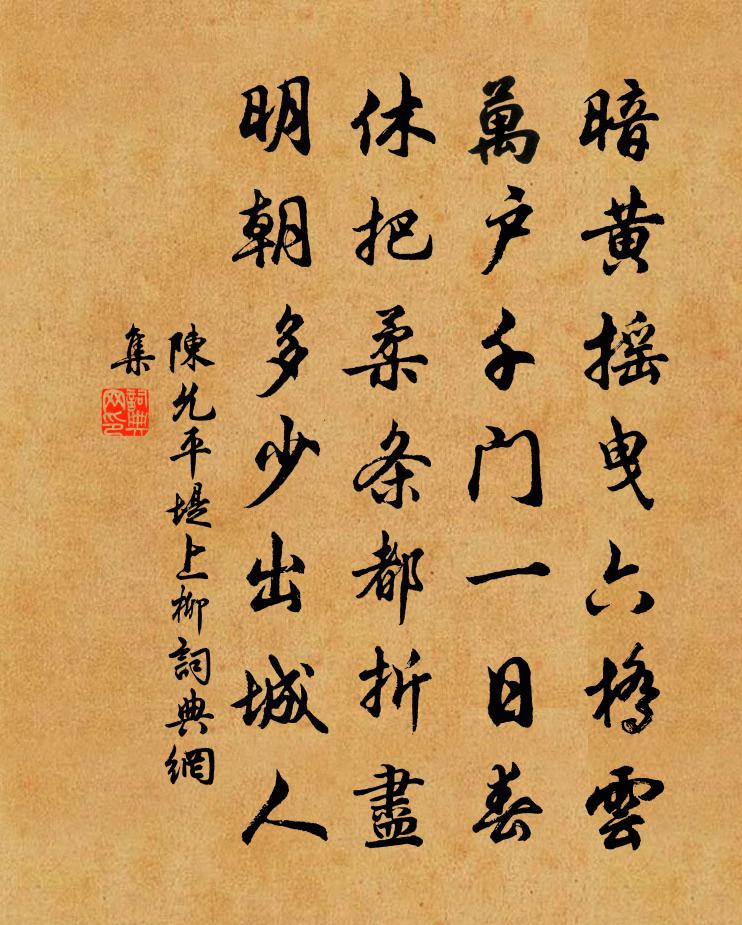 暗黄摇曳六橋雲
萬户千门一日春
休把柔条都折盡
明朝多少出城人
陳允平堤上柳詞典網
集
詞典
网印